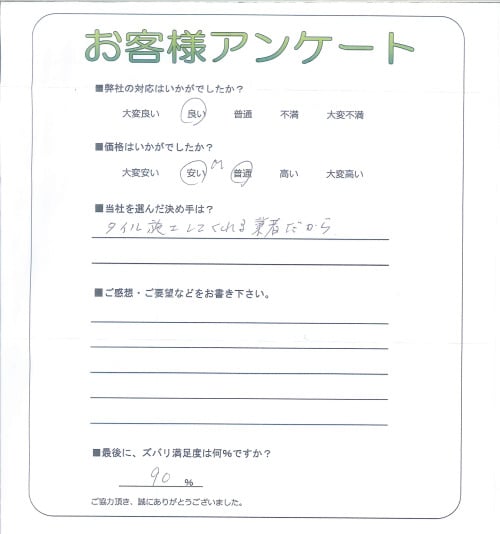 お客様アンケート
■弊社の対応はいかがでしたか？
大変良い 良い 普通 不満 大変不満
■価格はいかがでしたか？
大変安い 安い 普通 高い 大変高い
■当社を選んだ決め手は？
タイル施工してくれる業者だから
■ご感想・ご要望などをお書き下さい。
■最後に、ズバリ満足度は何％ですか？
90 ％
ご協力頂き、誠にありがとうございました。